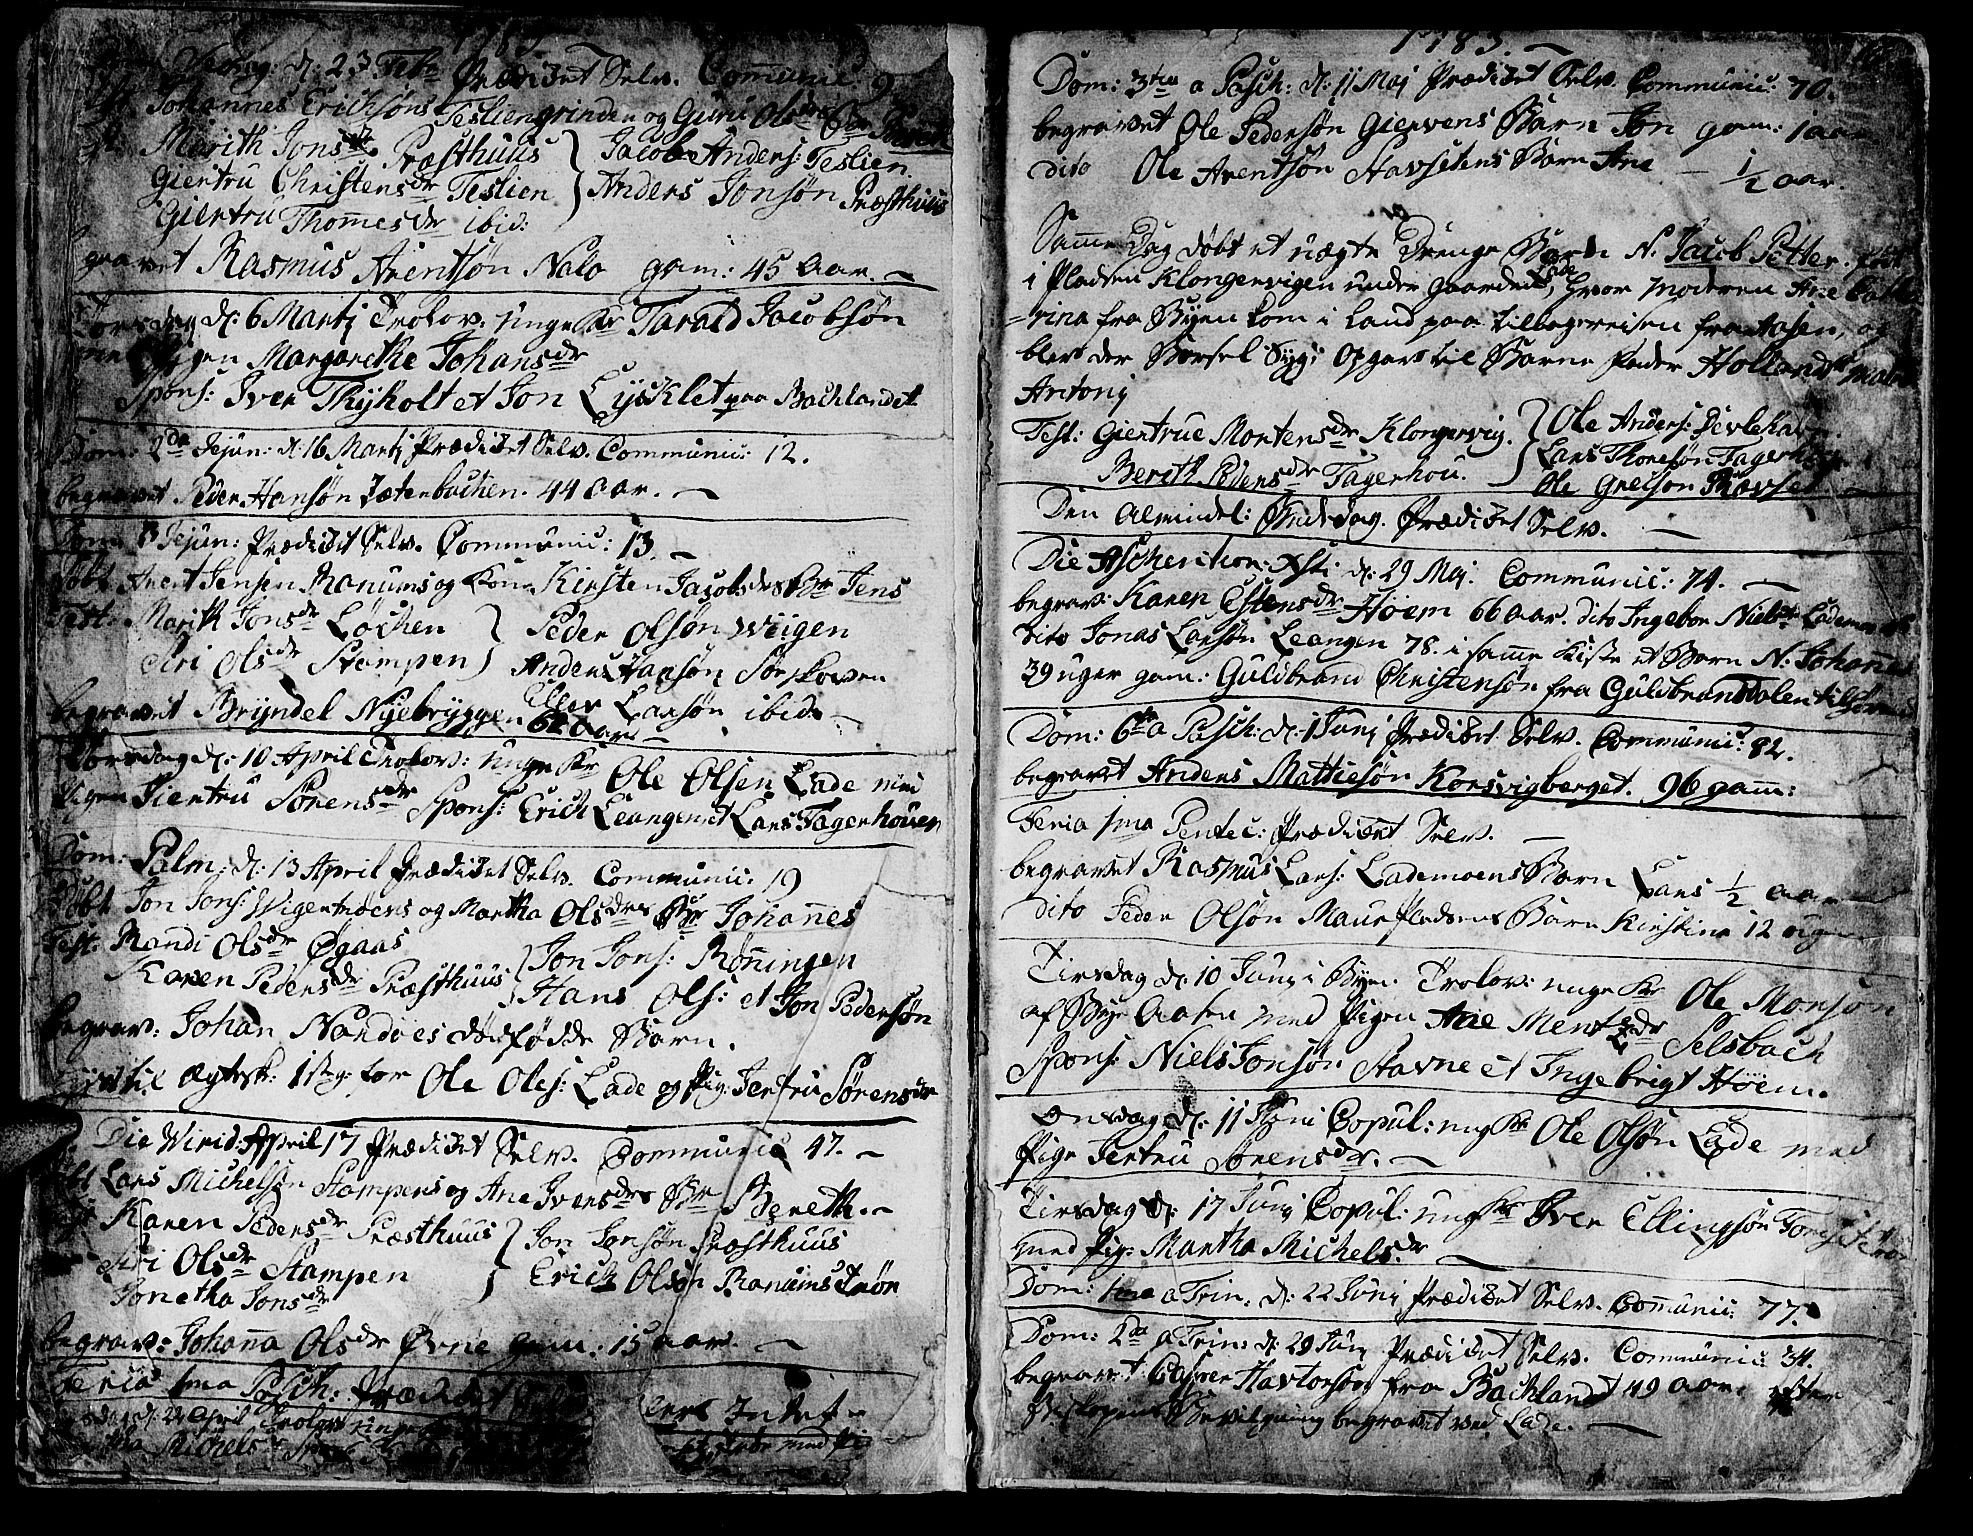 1783
d: 23 Febr Prædiket Selv. Communic: 9
Johannes Erichsøns Tesliengrinden og Guru Olsdr Br Berith
Marith Jonsdr Præsthuus } Jacob Anders: Teslien
Giertru Christensdr Teslien } Anders Jonsøn Præsthuus
Giertru Thomesdr ibid:
gravet Rasmus Arentsøn Nalo gam: 45 Aar.
dag d: 6 Martj Trolov: unge Kr Tarald Jacobsøn
Pigen Margarethe Johansdr
Spons: Iver Thyholt et Jon Lysklet paa Backlandet
Dom: 2da Jejun: d: 16 Martj Prædiket Selv. Communic: 12.
begravet Peder Hansøn Jætenbachen. 44 Aar.
Dom: 3 Jejun: Prædiket Selv. Communic: 13
døbt Arent Jensen Ranums og Kone Kirsten Jacobsdrs Br Jens
Test: Marith Jonsdr Løchen } Peder Olsøn Wiigen
Siri Olsdr Stampen } Anders Hansøn Sørskoven
Eller Larsøn ibid:
begravet Bryndel Nyebryggen 62 Aar
Torsdag d: 10 April Trolov: unge Kr Ole Olsen Lade med
Pigen Jertru Sørensdr Spons: Erich Leangen et Lars Fagerhouen
Dom: Palm: d: 13 April Prædiket Selv. Communic: 19
Døbt Jon Jons: Wigenmoens og Martha Olsdrs Br Johannes
Test: Randi Olsdr Øgaas } Jon Jons: Rønningen
Karen Pedersdr Præsthuus } Hans Ols: et Jon Pedersøn
begrav: Johan Nandoes dødfødde Barn.
til Ægtesk: 1 g: for Ole Oles: Lade og Pig: Jertru Sørensdr
Die Virid: April 17 Prædiket Selv. Communic 47.
døbt Lars Michelsøn Stampens og Ane Iversdrs Br Bereth.
Karen Pedersdr Præsthuus } Jon Jonsøn Præsthuus
Siri Olsdr Stampen } Erich Olsøn Ranums Trøn
Jonetha Jonsdr
begrav: Johanna Olsdr Øvne gam: 15 aar.
Feria 1ma Pasch: Prædiket Intet
d: 22 April Trolov unge med Pi
Michels Spons
1783.
Dom: 3tia a Pasch: d: 11 Maj Prædiket Selv. Communic: 70.
begravet Ole Pedersøn Giervens Barn Jon gam: 1 aar
dito Ole Arentsøn Havsetens Barn Ane 1/2 aar.
Samme Dag døbt et uægte Drenge Barn N. Jacob Petter. født
i Pladsen Klongervigen under Gaarden Lade, hvor Moderen Ane Catha
rina fra Byen kom i Land paa tilbagereisen fra Aasen, og
blev der Barsel Syg; Opgav til Barne fader Hollandsk Matros
Antonj
Test: Giertrue Mortensdr Klongervig. } Ole Anders: Devlehavn.
Berith Pedersdr Fagerhou. } Lars Thoresøn Fagerhou
Ole Gretsøn Ravset
Den Almindel: Bededag. Prædiket Selv.
Die Aschention: Xsti d: 29 Maj. Communic: 74.
begrav: Karen Estensdr Høem 66 aar. dito Ingebor Nielsdr Lademoen
dito Jonas Larsøn Leangen 78. i samme Kiste et Barn N. Johannes
39 uger gam: Guldbrand Christensøn fra Guldbrandsdalen tilhørende
Dom: 6ta a Pasch: d: 1 Junj Prædiket Selv. Communic: 82.
begravet Anders Mattiesøn Korsvigberget. 96 gam:
Feria 1ma Pentec: Prædiket Selv.
begravet Rasmus Lars: Lademoens Barn Lars 1/2 aar
dito Peder Olsøn Maurpladsens Barn Kirstina 12 uger
Tirsdag d: 10 Junj i Byen. Trolov: unge Kr Ole Monsøn
af Bye Aasen med Pigen Ane Mentzdr Selsbach
Spons: Niels Jonsøn Stavne et Ingebrigt Høem.
Onsdag d: 11 Juni Copul: ung Kr Ole Olsøn Lade med
Pige Jertru Sørensdr.
Tirsdag d: 17 Junj Copul: ung Kr Iver Ellingsøn
med Pig: Martha Michelsdr
Dom: 1ma a Trin. d: 22 Junj Prædiket Selv. Communic: 77.
Dom: 2da a Trin: d: 29 Junj Prædiket Selv. Communic: 34.
begravet Casper Havtorsøn fra Backlandt 49 aar. efter
Biskopens Bevilgning begravet ved Lade.